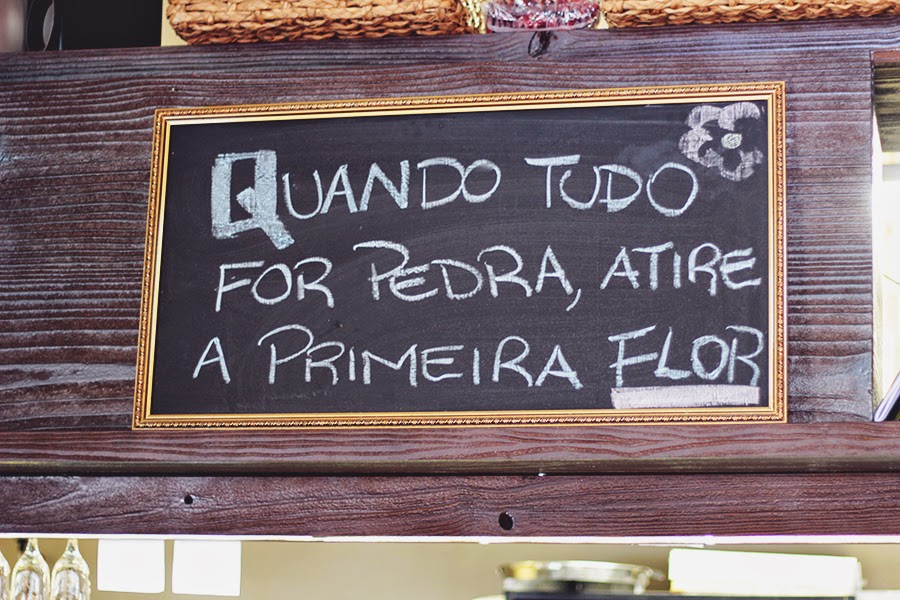 QUANDO TUDO
FOR PEDRA, ATIRE
A PRIMEIRA FLOR